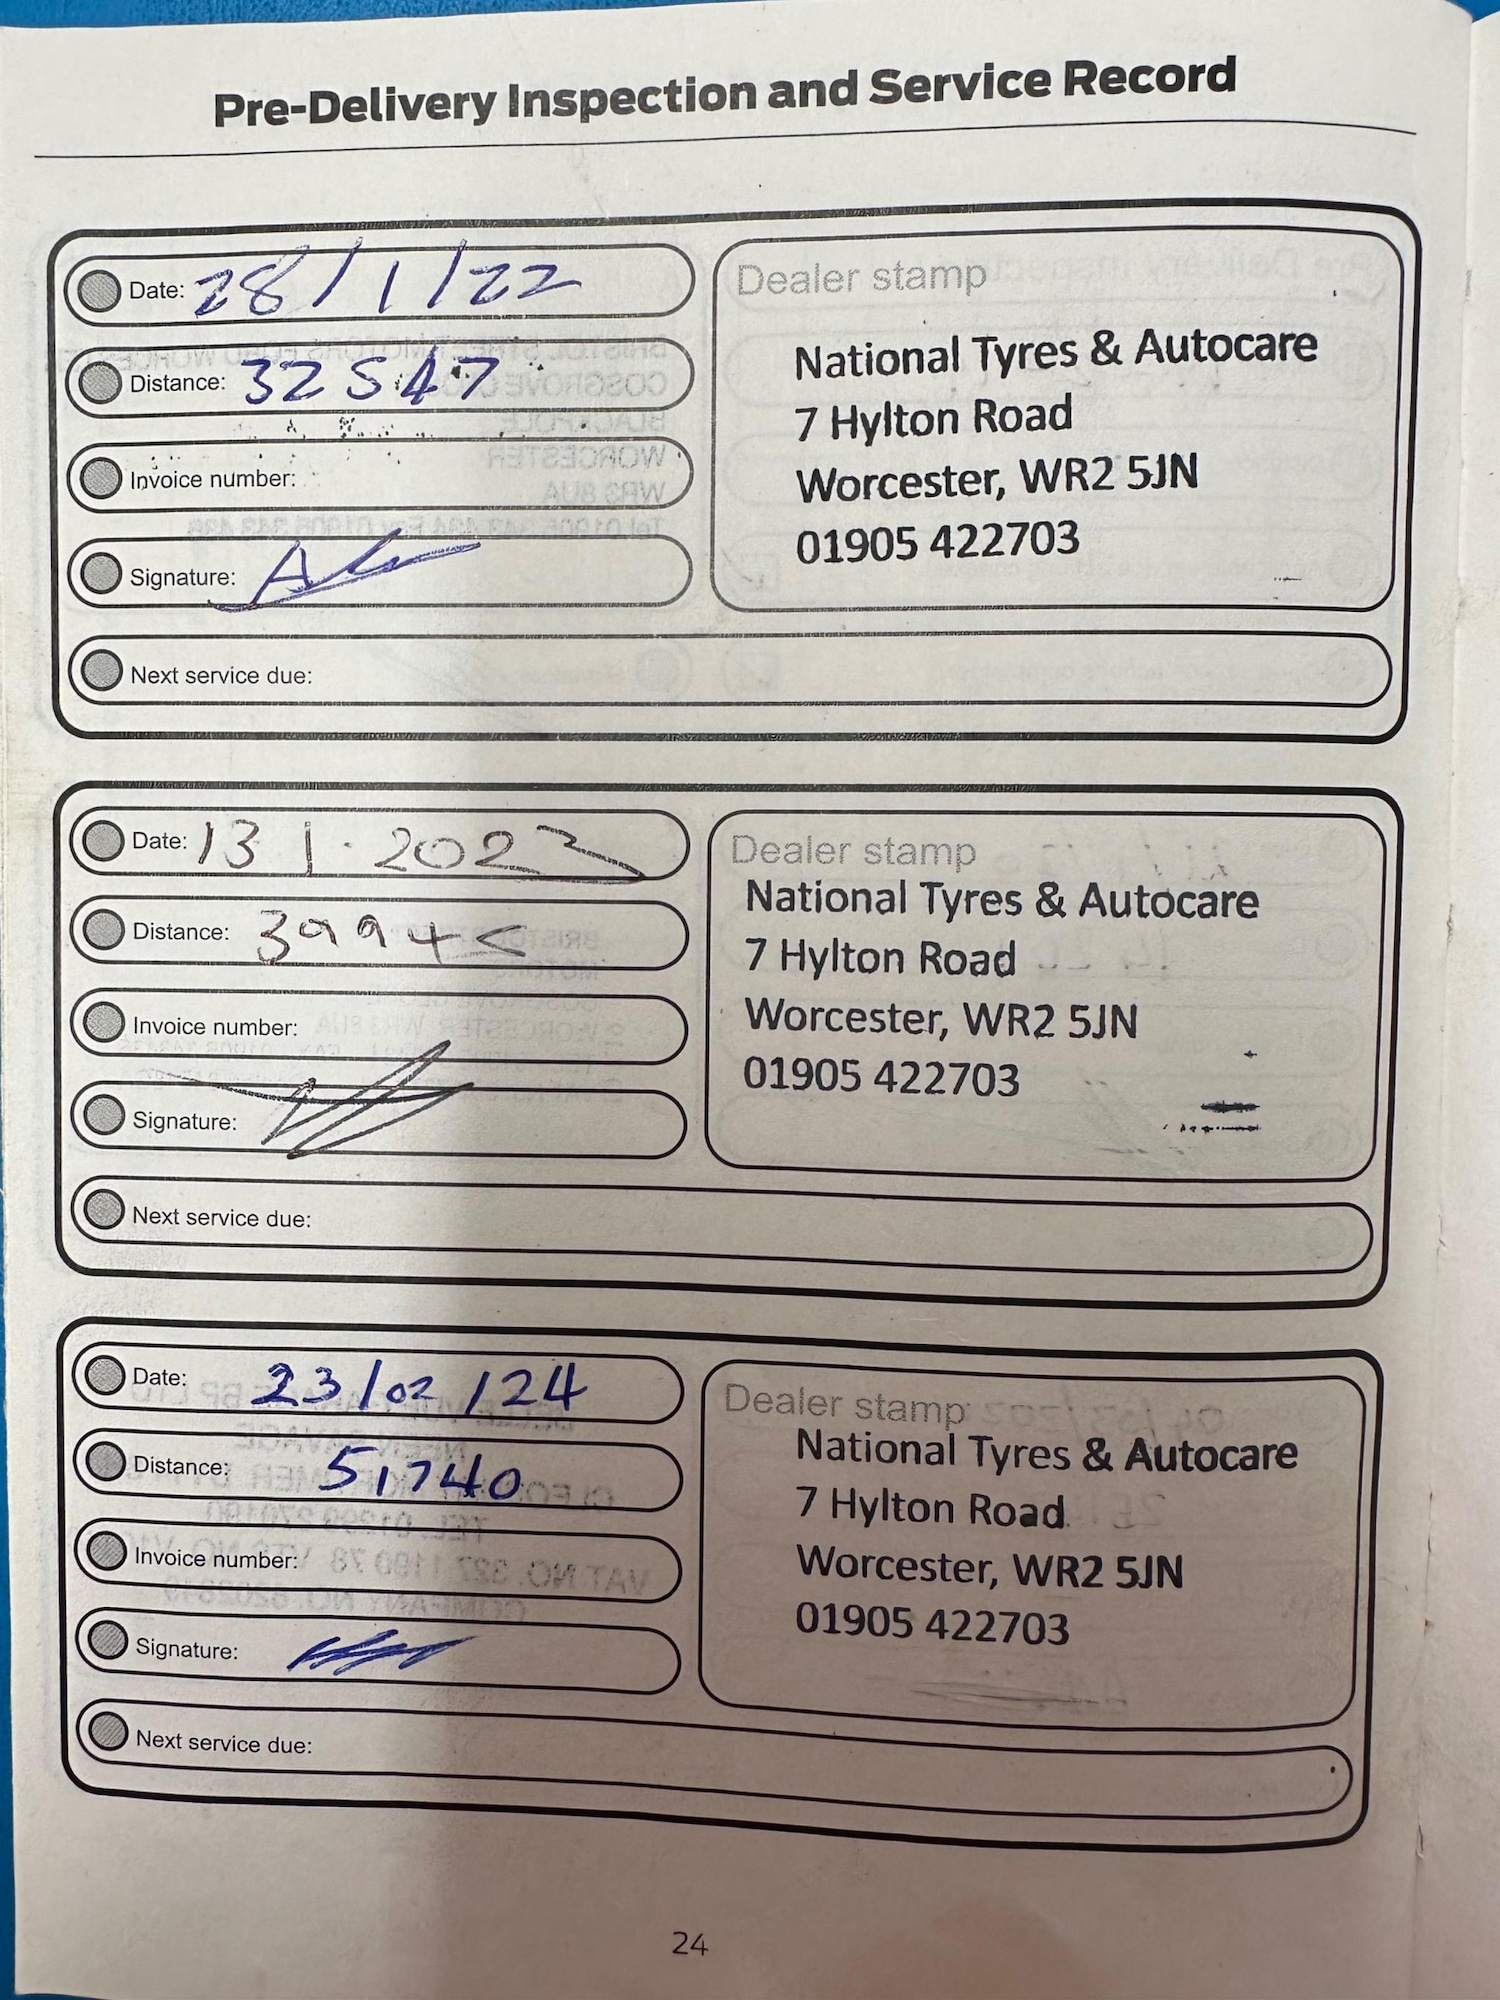 Pre-Delivery Inspection and Service Record
Date: 28/1/22
Distance: 32547
Invoice number:
Signature:
Next service due:
Dealer stamp
National Tyres & Autocare
7 Hylton Road
Worcester, WR2 5JN
01905 422703
Date: 13 1 · 2023
Distance: 3994
Invoice number:
Signature:
Next service due:
Dealer stamp
National Tyres & Autocare
7 Hylton Road
Worcester, WR2 5JN
01905 422703
Date: 23/02/24
Distance: 51740
Invoice number:
Signature:
Next service due:
Dealer stamp
National Tyres & Autocare
7 Hylton Road
Worcester, WR2 5JN
01905 422703
24